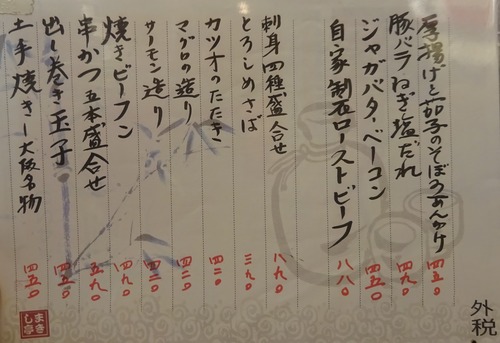 厚揚げと茄子のそぼろあんかけ 四五〇
豚バラねぎ塩だれ 四九〇
ジャガバタ・ベーコン 四五〇
自家製石ローストビーフ 八八〇
刺身四種盛合せ 八九〇
とろしめさば 三九〇
カツオのたたき 四二〇
マグロの造り 四二〇
サーモン造り 四二〇
焼きビーフン 四九〇
串かつ五本盛合せ 五九〇
出し巻き玉子 四五〇
土手焼き―大阪名物 四五〇
外税
まき
し亭